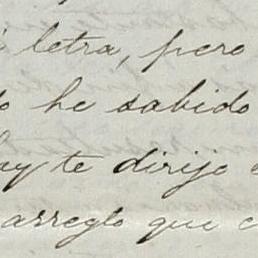 letra, pero
he sabido
hay te dirijo
arreglo que